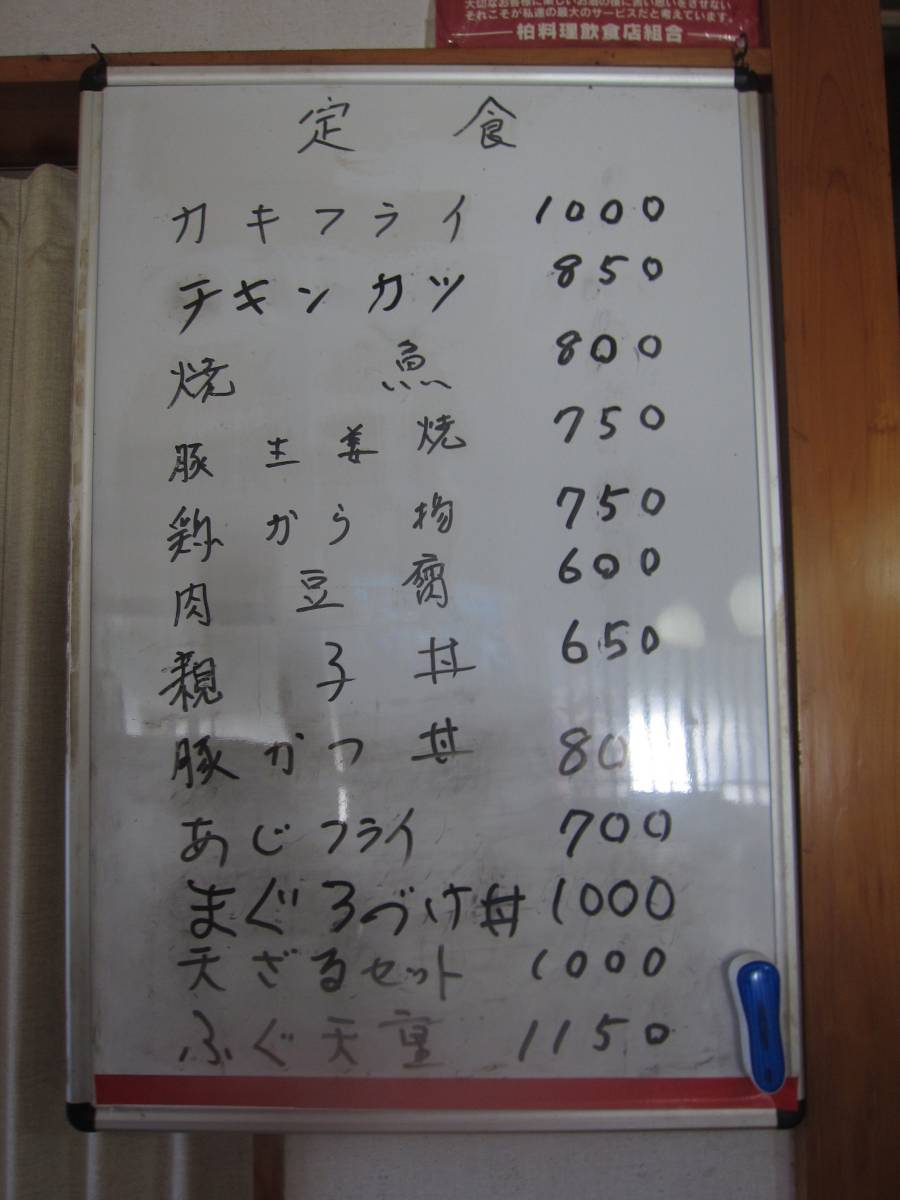 大切なお客様に楽しいお酒の後に悪い思いをさせない
それこそが私達の最大のサービスだと考えています。
柏料理飲食店組合
定食
カキフライ 1000
チキンカツ 850
焼魚 800
豚生姜焼 750
鶏から揚 750
肉豆腐 600
親子丼 650
豚かつ丼 80
あじフライ 700
まぐろづけ丼 1000
天ざるセット 1000
ふぐ天重 1150